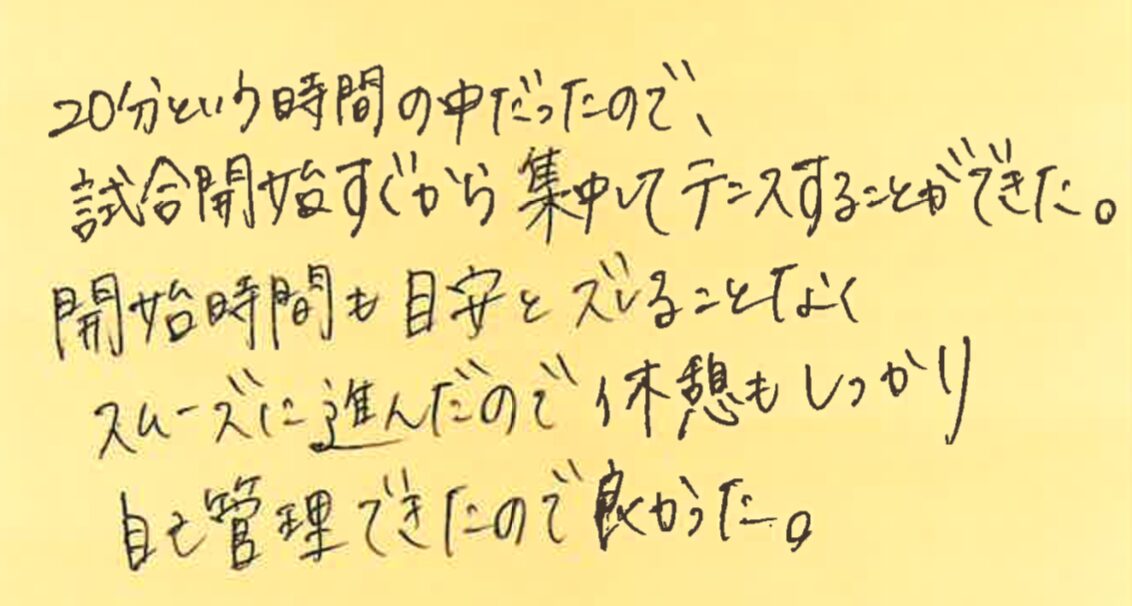 20分という時間の中だったので、
試合開始すぐから集中してテニスすることができた。
開始時間も目安とズレることなく
スムーズに進んだので休憩もしっかり
自己管理できたので良かった。